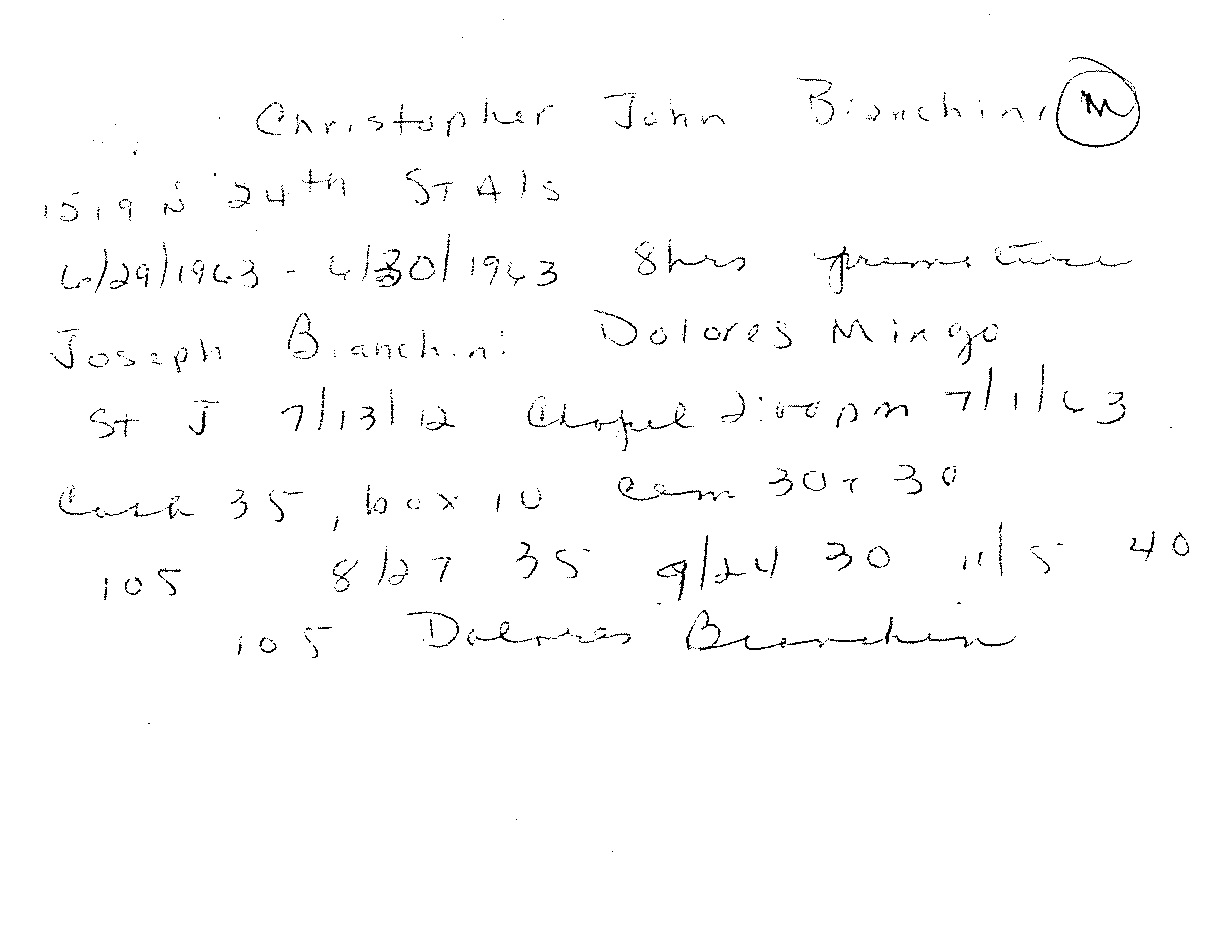 Christopher John Bianchini M
1519 N 24th St Als
6/29/1963 - 6/30/1963 8hrs premature
Joseph Bianchini Dolores Mingo
St J 7/13/12 Chapel 2:00pm 7/1/63
Cash 35, box 10 cem 30 + 30
105 8/27 35 9/24 30 11/5 40
105 Dolores Bianchini